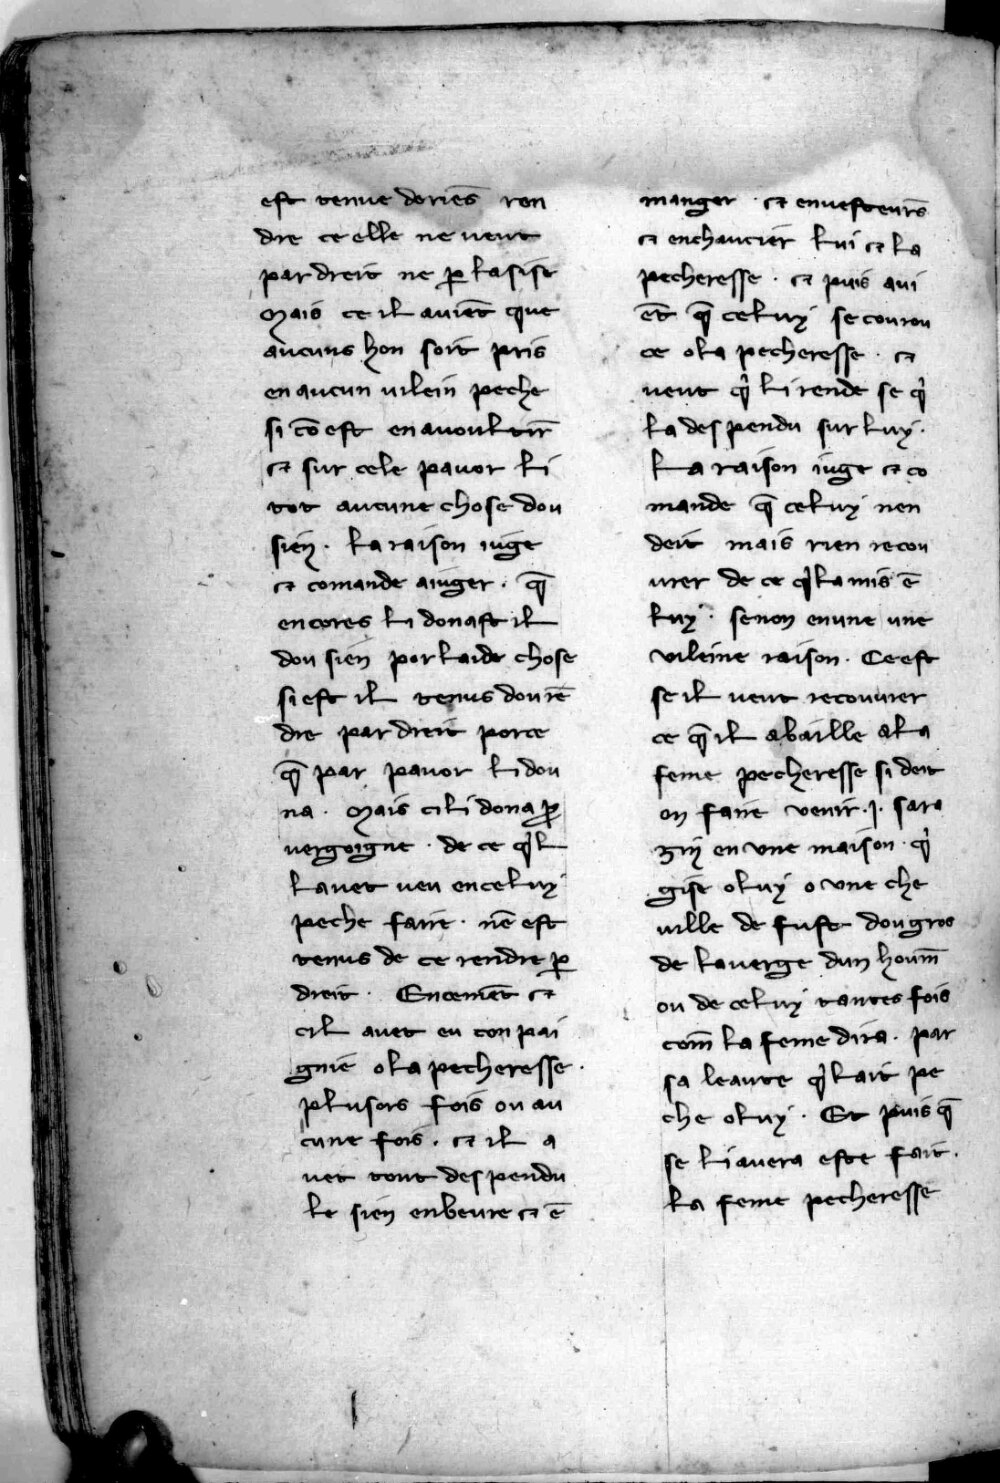 est tenue doriens̄ ren
dre ce elle ne veut
par dreit ne ꝑ lasist
Mais ce il auiēt que
aucuns hon soit pris
en aucun uilein peche
si cō est en auoultir̄
et sur cele pauor li
tot aucune chose dou
sien . la raison iuge
et comande aiuger . q̄
encores li donast il
dou sien por laide chose
si est il tenus dou rē
dre par dreit porce
q̄ par pauor li dou
na . Mais cil i dona ꝑ
uergoigne . de ce qͥl
lauet ueu en celuy
peche faire . nē est
tenus de ce rendre ꝑ
dreit . Encemēt et
cil auet eu conpai
gnie o la pecheresse .
plusors fois ou au
cune fois . et il a
uet tout despendu
le sien enbeure et ē
manger . et enuesteurs̄
et enchaucier lui et la
pecheresse . et puis aui
ēt q̄ celuy se courou
ce o la pecheresse . et
ueut qͥ li rende se qͥ
la despendu sur luy .
La raison iuge et co
mande q̄ celuy nen
deit mais rien recou
urer de ce qͥl a mis ē
luy . senon en une
uileine raison . Ce est
se il ueut recouurer
ce q̄ il abaille a la
feme pecheresse si deit
on faire venir .j. sara
zin en vne maison . qͥ
gise o luy o vne che
uille de fust dou gros
de la uerge dun houm̄
ou de celuy tantes fois
com̄ la feme dira . par
sa leaute qͥl ait pe
che o luy . Et puis q̄
se li auera este fait .
la feme pecheresse